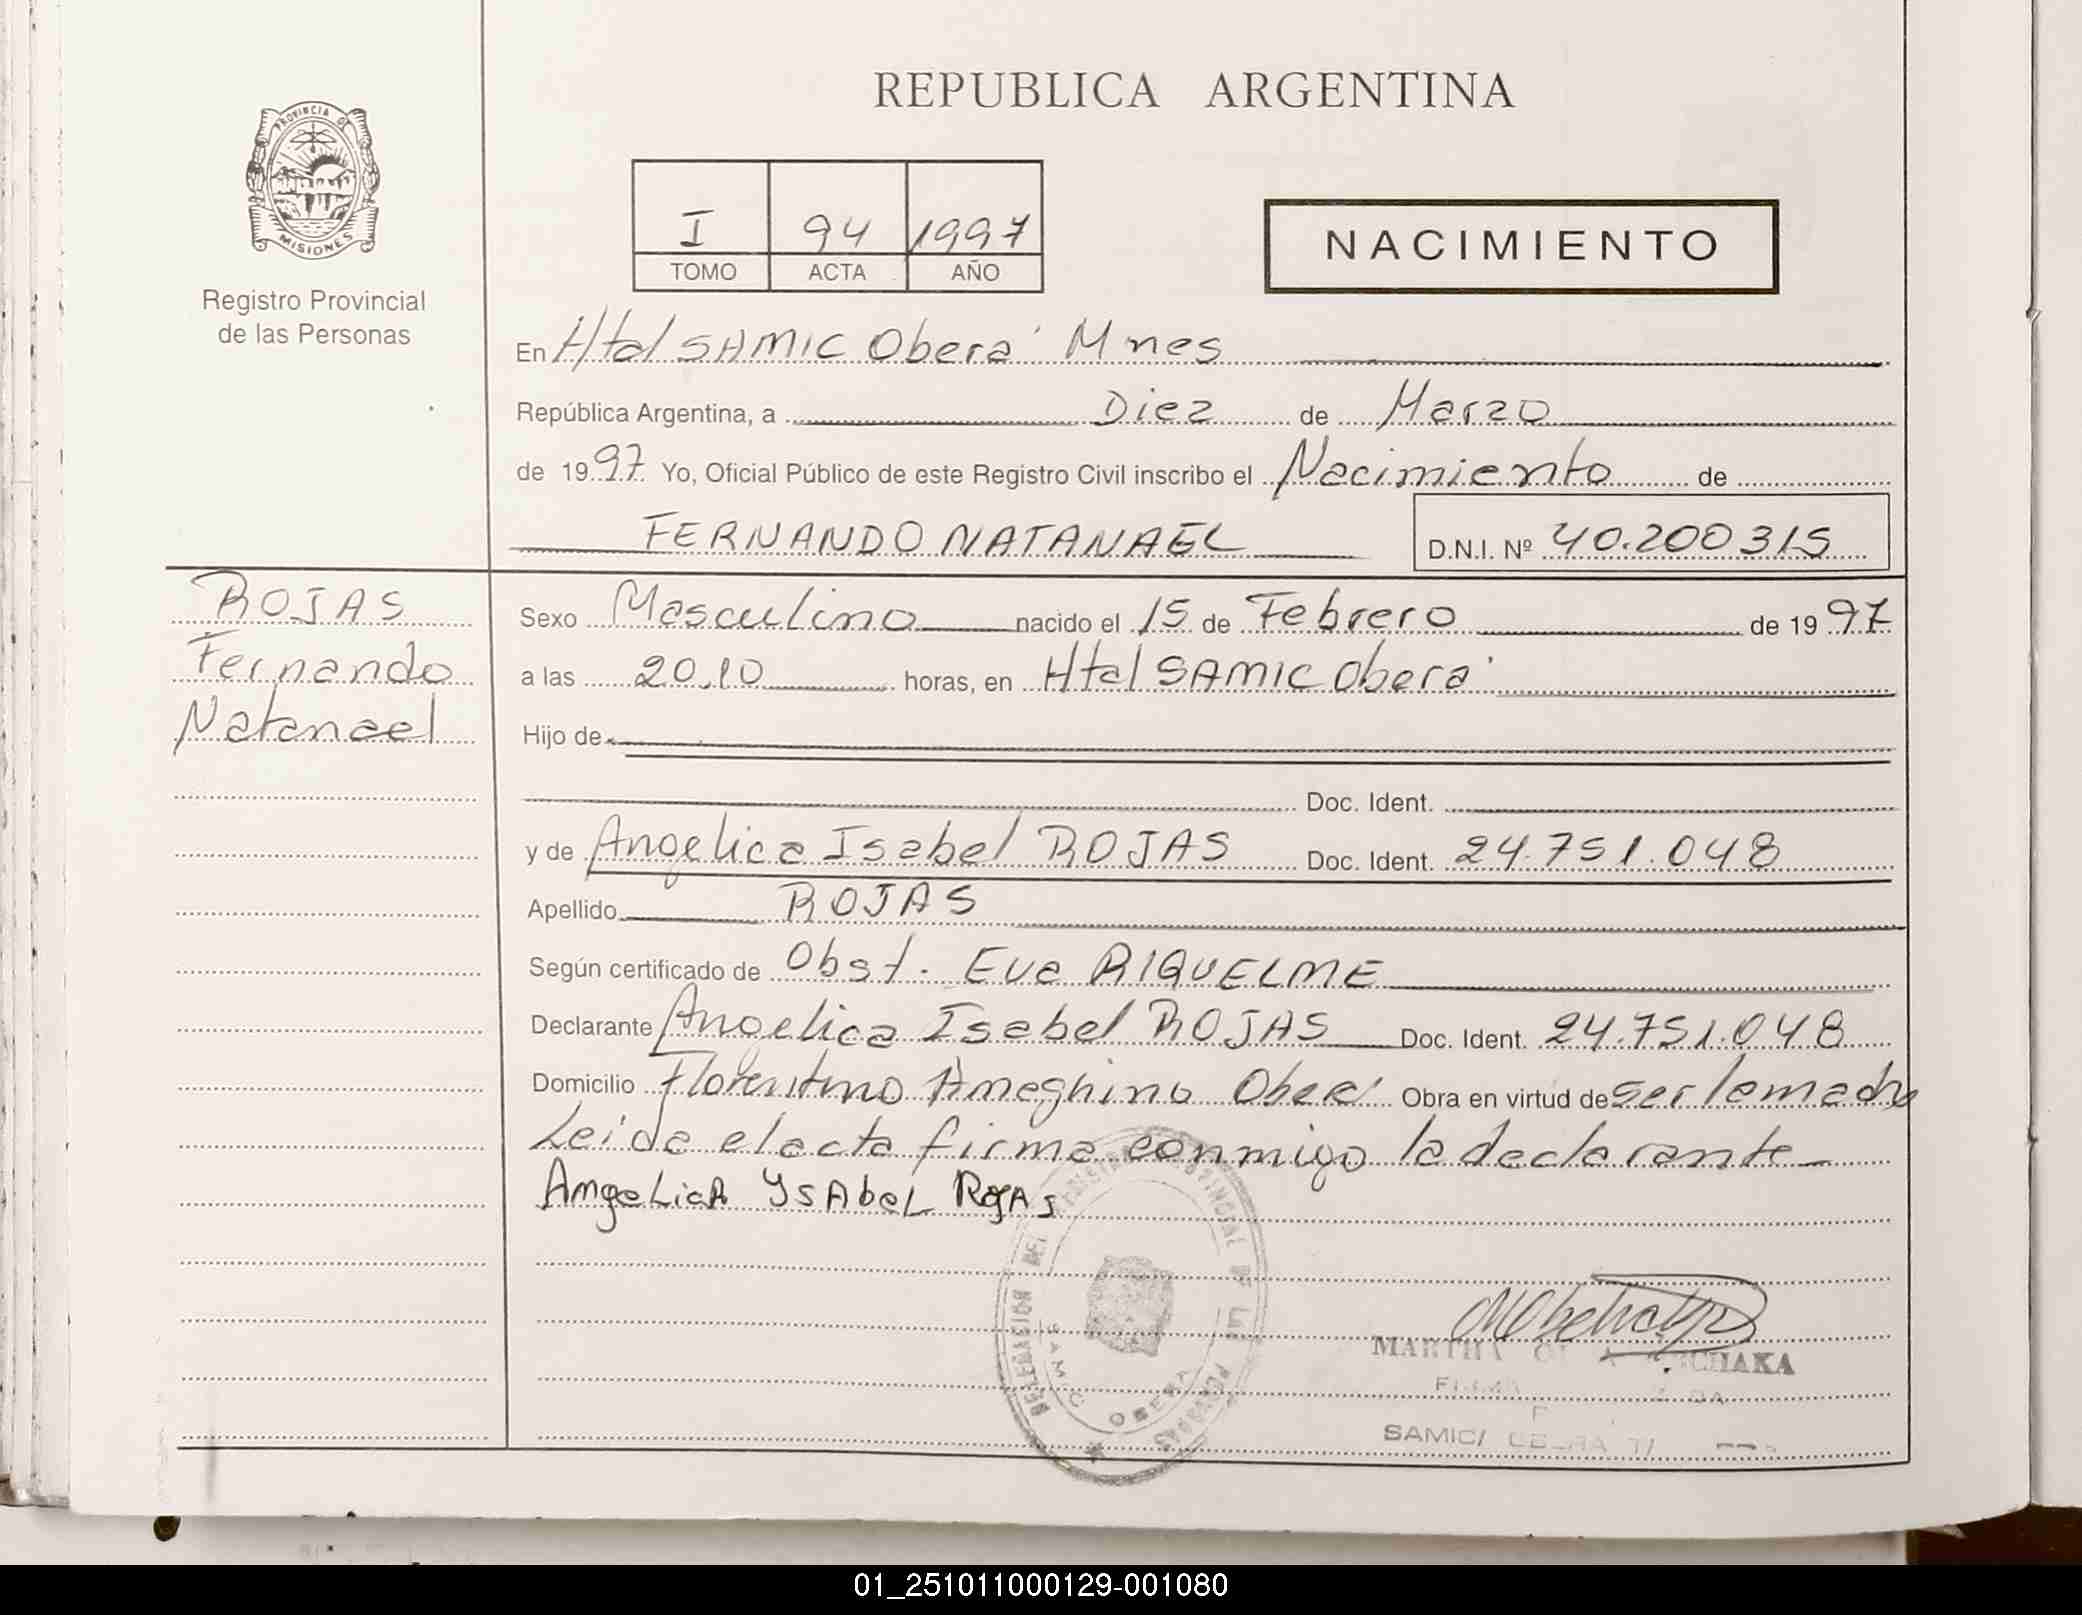 REPUBLICA ARGENTINA
PROVINCIA DE
MISIONES
Registro Provincial
de las Personas
I 94 1997
TOMO ACTA AÑO
NACIMIENTO
En Htal SAMIC Oberá Mnes
República Argentina, a Diez de Marzo
de 1997 Yo, Oficial Público de este Registro Civil inscribo el Nacimiento de
FERNANDO NATANAEL D.N.I. Nº 40.200315
ROJAS
Fernando
Natanael
Sexo Masculino nacido el 15 de Febrero de 1997
a las 20,10 horas, en Htal SAMIC Oberá
Hijo de
Doc. Ident.
y de Angelica Isabel ROJAS Doc. Ident. 24.751.048
Apellido ROJAS
Según certificado de Obst. Eva RIQUELME
Declarante Angelica Isabel ROJAS Doc. Ident. 24.751.048
Domicilio Florentino Ameghino Obera Obra en virtud de ser la madre
Leida el acta firma conmigo la declarante
AngeLicA YsAbeL RojAs
DELEGACION DEL REGISTRO PROVINCIAL DE LAS PERSONAS
SAMIC OBERA
MARTHA
SAMIC/ OBERA
01_251011000129-001080